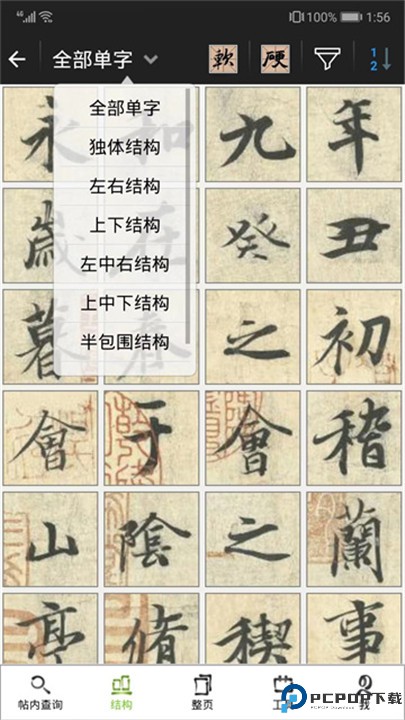 100% 1:56
全部单字 軟 硬 1 2
全部单字
独体结构
左右结构
上下结构
左中右结构
上中下结构
半包围结构
永 和 九 年
歲 在 癸 丑
暮 春 之 初
會 于 會 稽
山 陰 之 蘭
亭 脩 稧 事
帖内查询 结构 整页 工 我
PCPOP下载